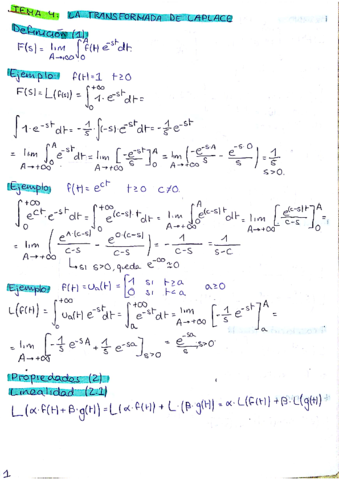 TEMA 4: LA TRANSFORMADA DE LAPLACE
Definición (1)
F(s) = lim A→+∞ ∫₀^A f(t) e^-st dt.
Ejemplo: f(t)=1 t≥0
F(s) = L(f(s)) = ∫₀^+∞ 1·e^-st dt =
∫1·e^-st dt = -1/s ∫(-s) e^-st dt = -1/s e^-st
= lim A→+∞ ∫₀^A e^-st dt = lim A→+∞ [-e^-st/s]₀^A = lim A→+∞ (-e^-sA/s - e^-s·0/s) = 1/s s>0.
Ejemplo: f(t) = e^ct t≥0 c≠0.
∫₀^+∞ e^ct · e^-st dt = ∫₀^+∞ e^(c-s)t dt = lim A→+∞ ∫₀^A e^(c-s)t dt = lim A→+∞ [e^(c-s)t/c-s]₀^A =
= lim A→+∞ (e^A·(c-s)/c-s - e^0·(c-s)/c-s) = -1/c-s = 1/s-c
↳ si s>0, queda e^-∞ ≃ 0
Ejemplo: f(t) = ua(t) = [1 si t≥a
0 si t<a a≥0
L(f(t)) = ∫₀^+∞ ua(t) e^-st dt = ∫ₐ^+∞ e^-st dt = lim A→+∞ [-1/s e^-st]ₐ^A =
= lim A→+∞ [-1/s e^-sA + 1/s e^-sa] s>0 = e^-sa/s, s>0.
Propiedades (2)
Linealidad (2.1)
L(α·f(t)+β·g(t)) = L(α·f(t)) + L·(β·g(t)) = α·L(f(t)) + β·L(g(t))
1